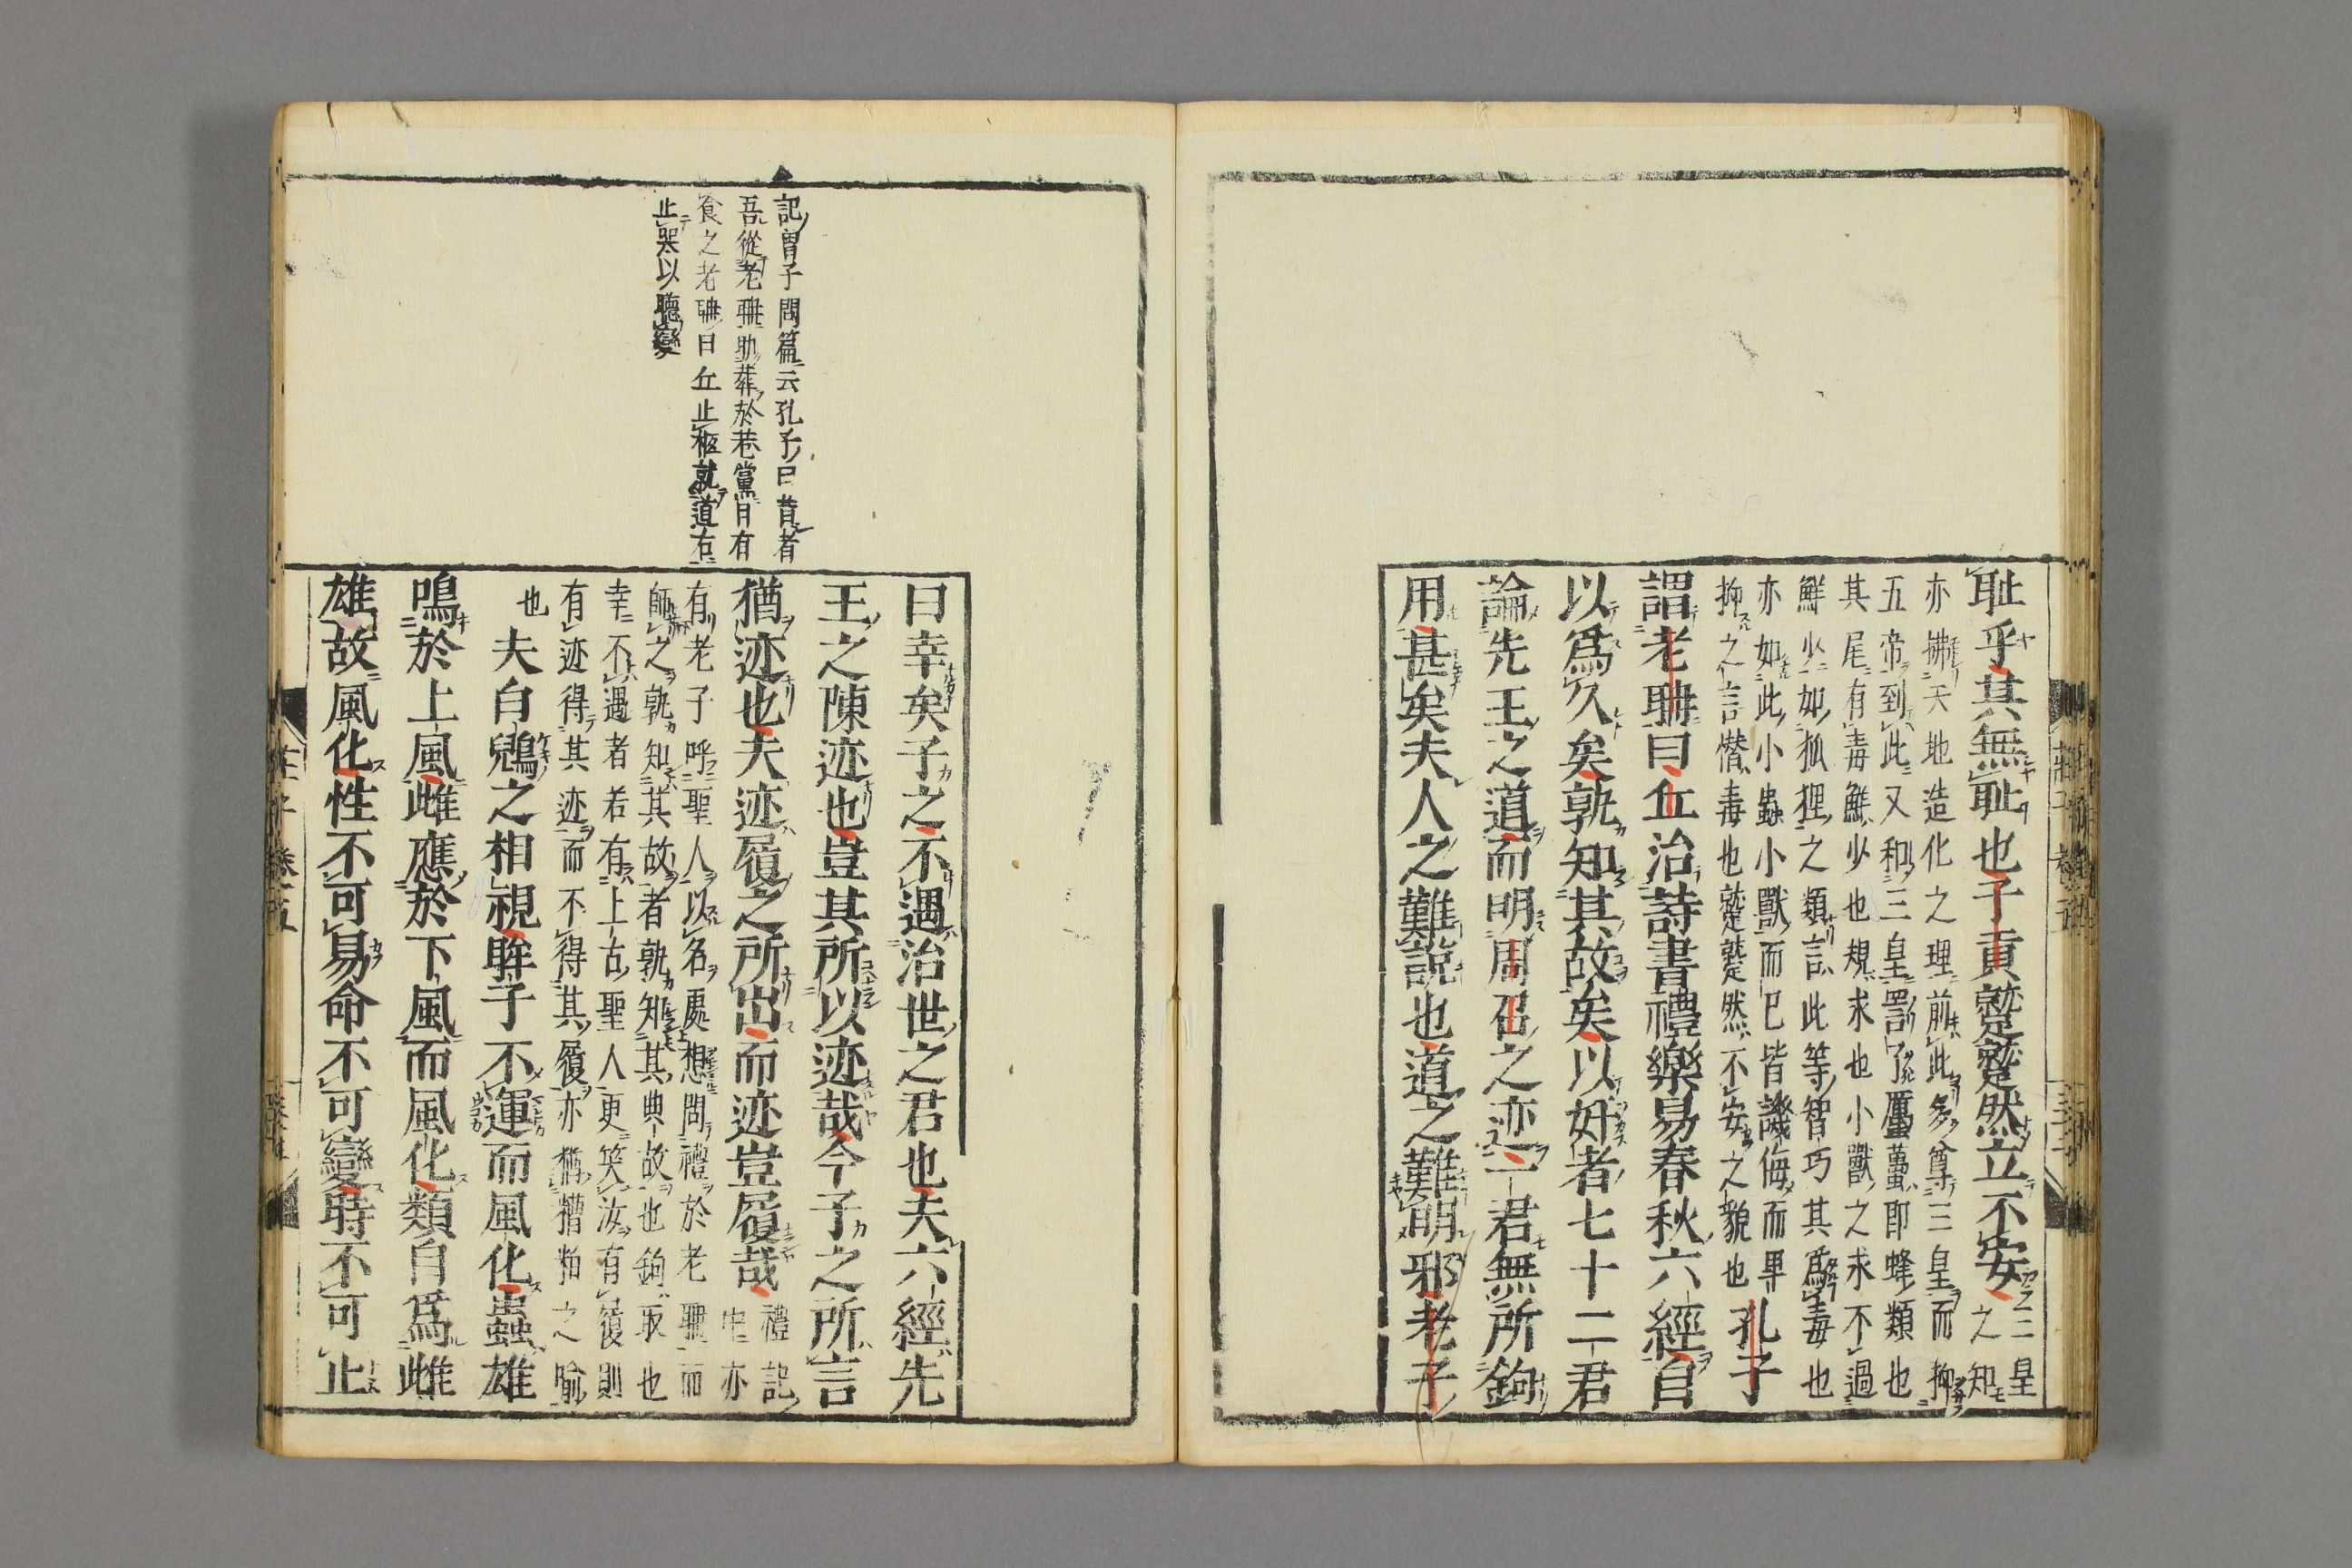 耻乎其無耻也子貢蹵蹵然立不安三皇
之知
亦拂天地造化之理前此多尊三皇而抑
五帝到此又和三皇罵了厲蠆即蜂類也
其尾有毒鮮少也規求也小獸之求不過
鮮少如狐狸之類言此等智巧其爲毒也
亦如此小蟲小獸而已皆譏侮而畢
抑之言憯毒也蹵蹵然不安之貌也
孔子
謂老聃曰丘治詩書禮樂易春秋六經自
以爲久矣孰知其故矣以奸者七十二君
論先王之道而明周召之迹一君無所鉤
用甚矣夫人之難說也道之難明邪老子
記曾子問篇云孔子曰昔者
吾從老聃助葬於巷黨日有
食之老聃曰丘止柩就道右
止哭以聽變
曰幸矣子之不遇治世之君也夫六經先
王之陳迹也豈其所以迹哉今子之所言
猶迹也夫迹履之所出而迹豈履哉禮記
中亦
有老子呼聖人以名處想問禮於老聃而
師之孰知其故者孰知其典故也鉤取也
幸不遇者若有上古聖人更笑汝有履則
有迹得其迹而不得其履亦猶糟粕之喻
也夫白鶂之相視眸子不運而風化蟲雄
鳴於上風雌應於下風而風化類自爲雌
雄故風化性不可易命不可變時不可止